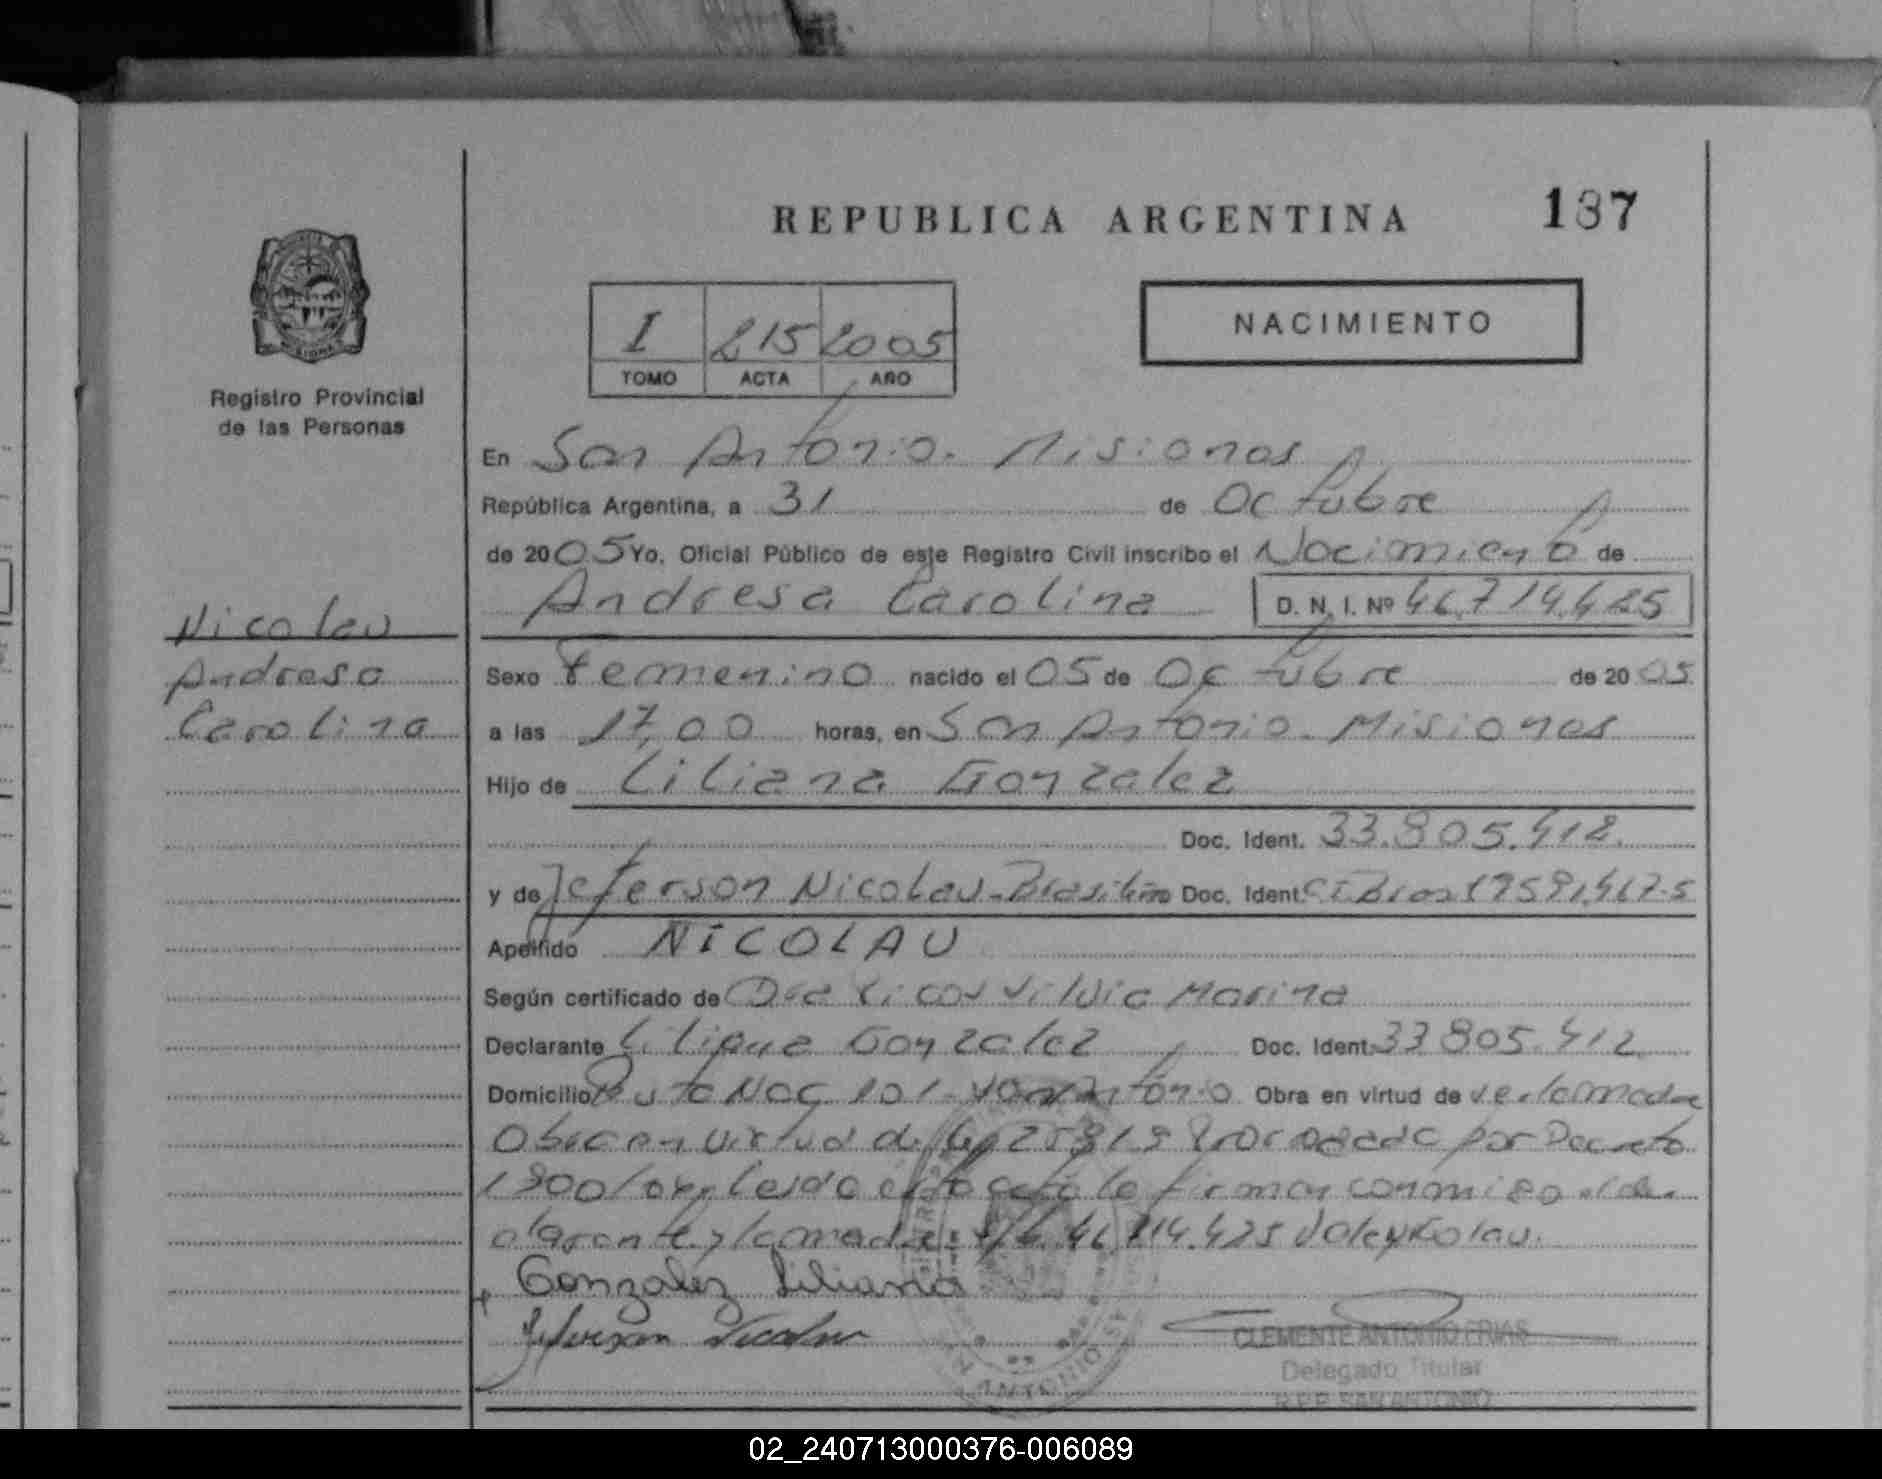 REPUBLICA ARGENTINA
137
I 215 2005
TOMO ACTA AÑO
NACIMIENTO
Registro Provincial
de las Personas
En San Antonio. Misiones
República Argentina, a 31 de Octubre
de 2005 Yo, Oficial Público de este Registro Civil inscribo el Nacimiento de
Andresa Carolina D. N. I. Nº 46.714.425
Nicolau
Andresa
Carolina
Sexo Femenino nacido el 05 de Octubre de 2005
a las 17,00 horas, en San Antonio. Misiones
Hijo de Liliana Gonzalez
Doc. Ident. 33.805.412
y de Jeferson Nicolau - Brasileño Doc. Ident.
Apellido NICOLAU
Según certificado de Dra Silvia Marina
Declarante Liliana Gonzalez Doc. Ident. 33.805.412
Domicilio Ruta Nac 101. San Antonio Obra en virtud de ve. la madre
Obra en virtud de ley 25819 Prorrogada por Decreto
leido esta acta la firman conmigo el de-
clarante y la madre 46.714.425 Vale Nicolau.
Gonzalez Liliana
Jeferson Nicolau
CLEMENTE ANTONIO FRIAS
Delegado Titular
R.P.P. SAN ANTONIO
02_240713000376-006089